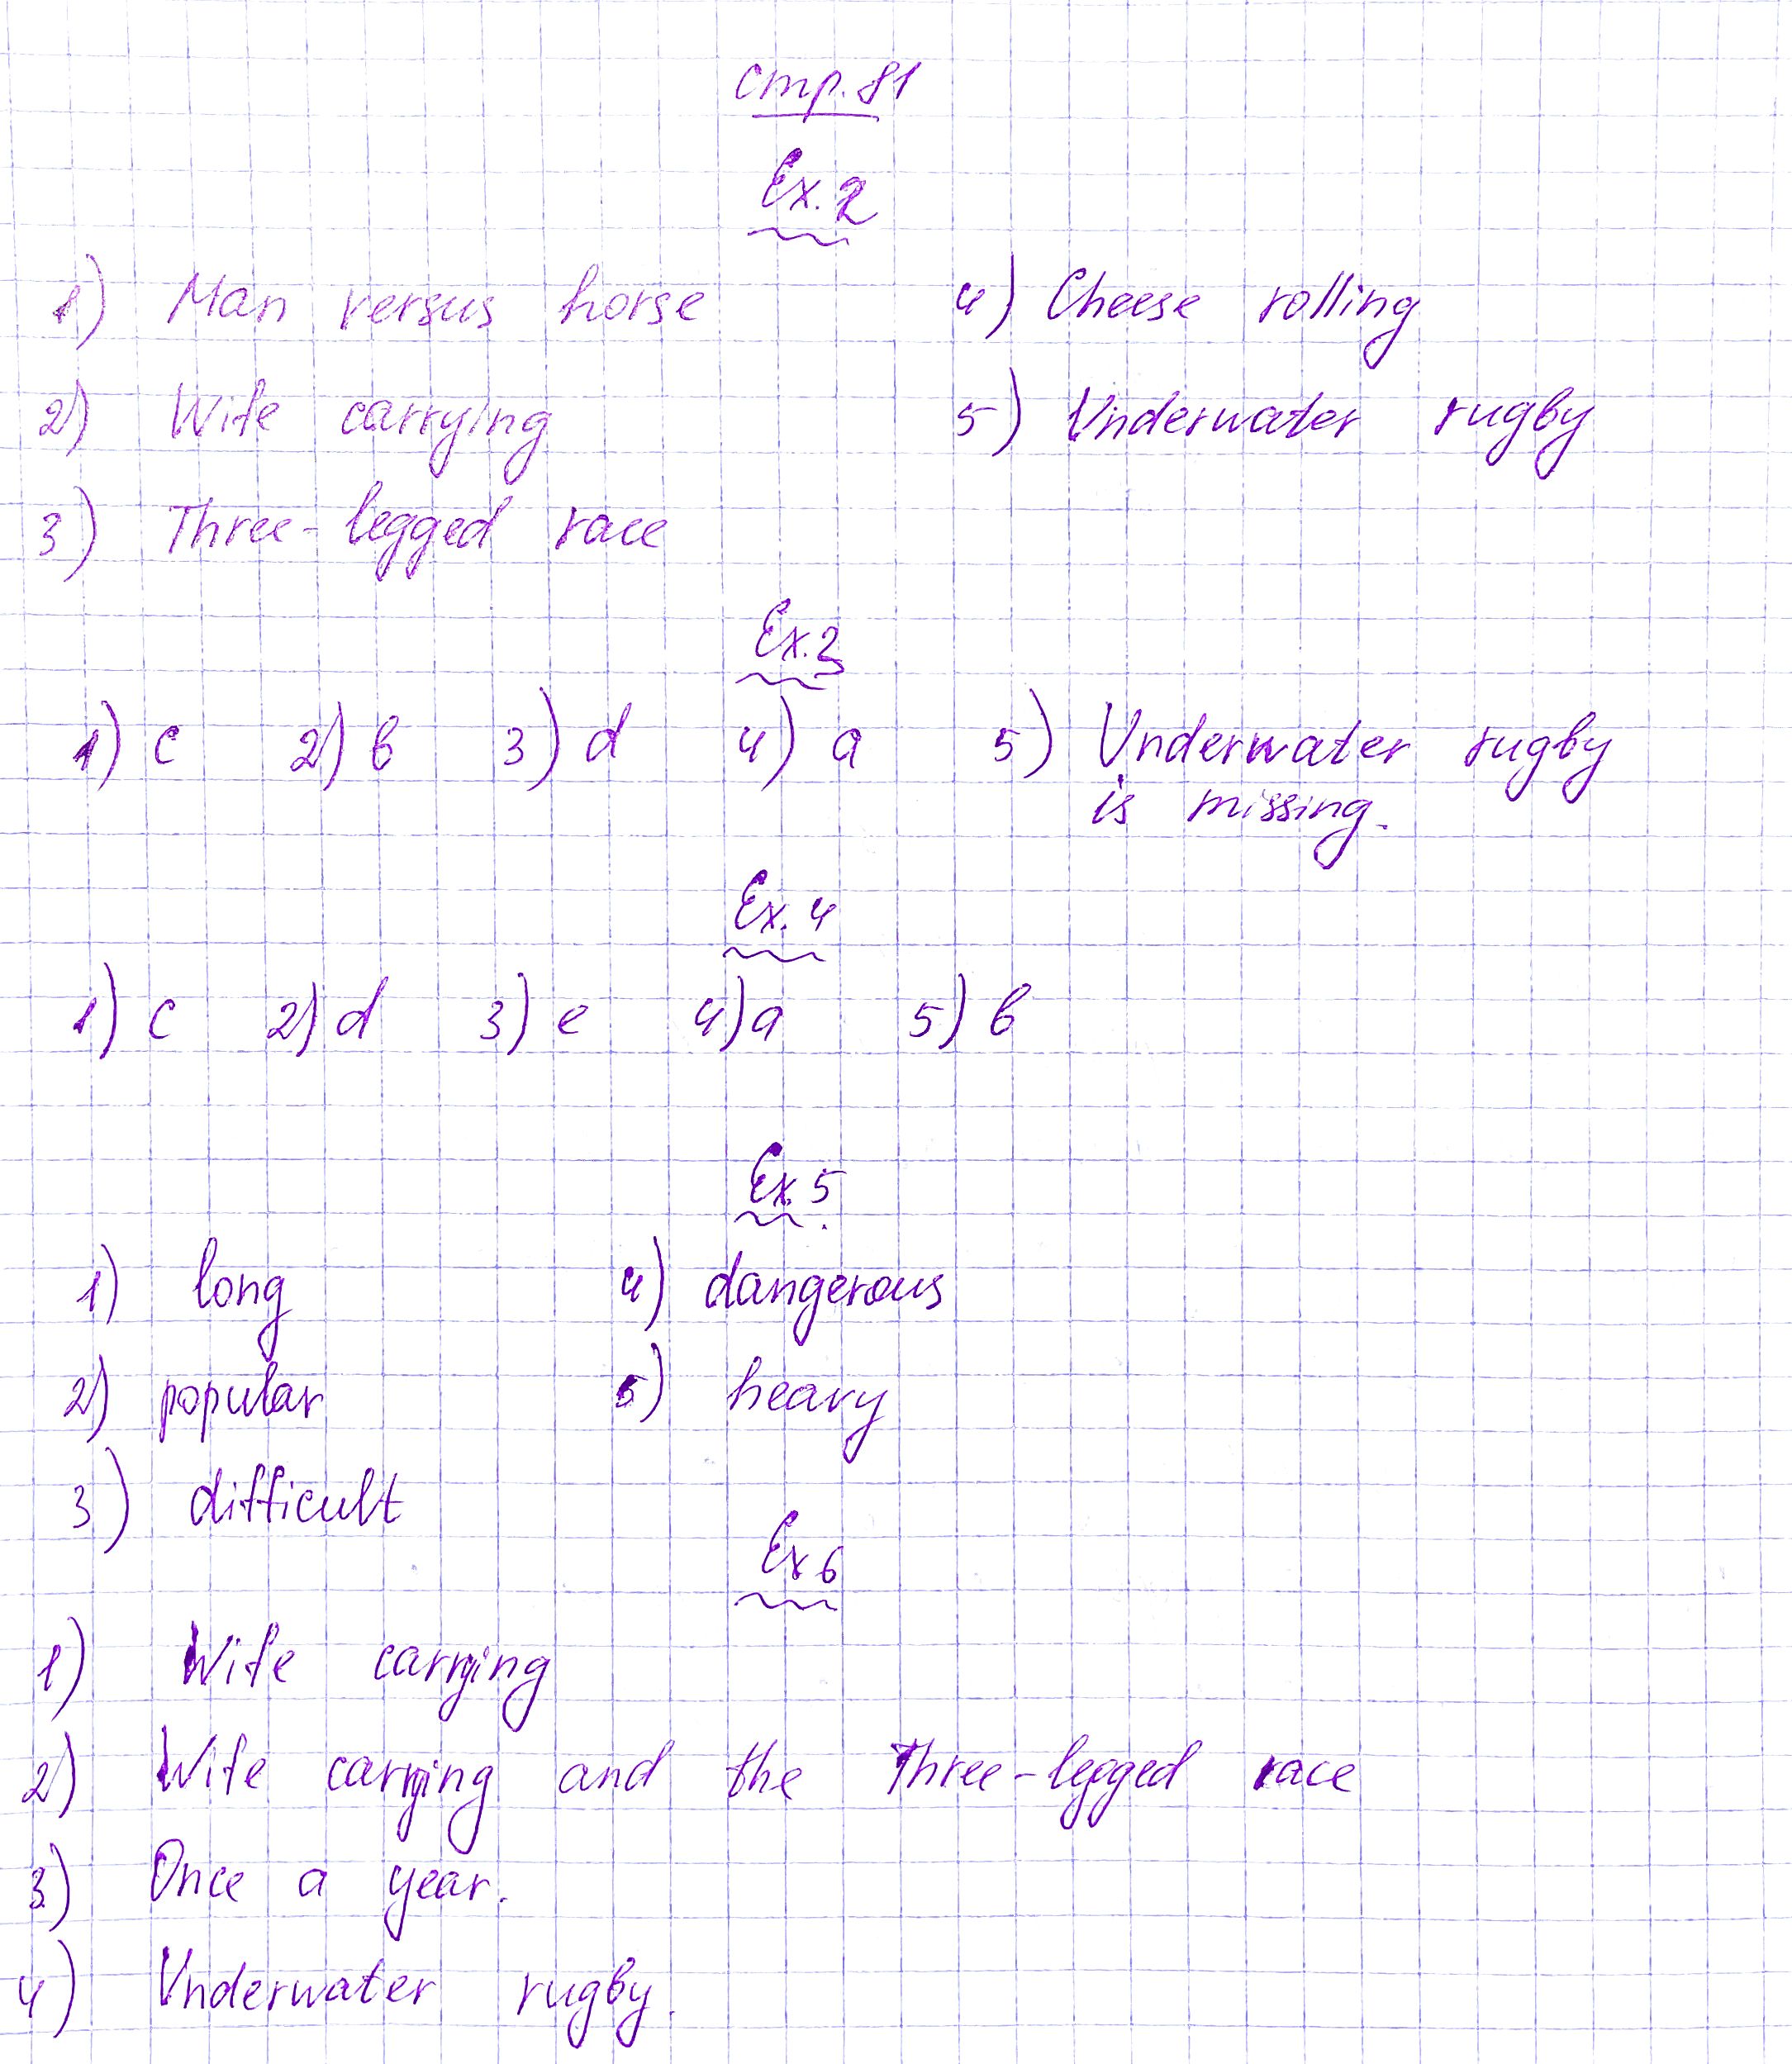 стр. 81
Ex. 2
1) Man versus horse 4) Cheese rolling
2) Wife carrying 5) Underwater rugby
3) Three-legged race
Ex. 3
1) c 2) b 3) d 4) a 5) Underwater rugby
is missing.
Ex. 4
1) c 2) d 3) e 4) a 5) b
Ex. 5
1) long 4) dangerous
2) popular 5) heavy
3) difficult
Ex 6
1) Wife carrying
2) Wife carrying and the Three-legged race
3) Once a year.
4) Underwater rugby.